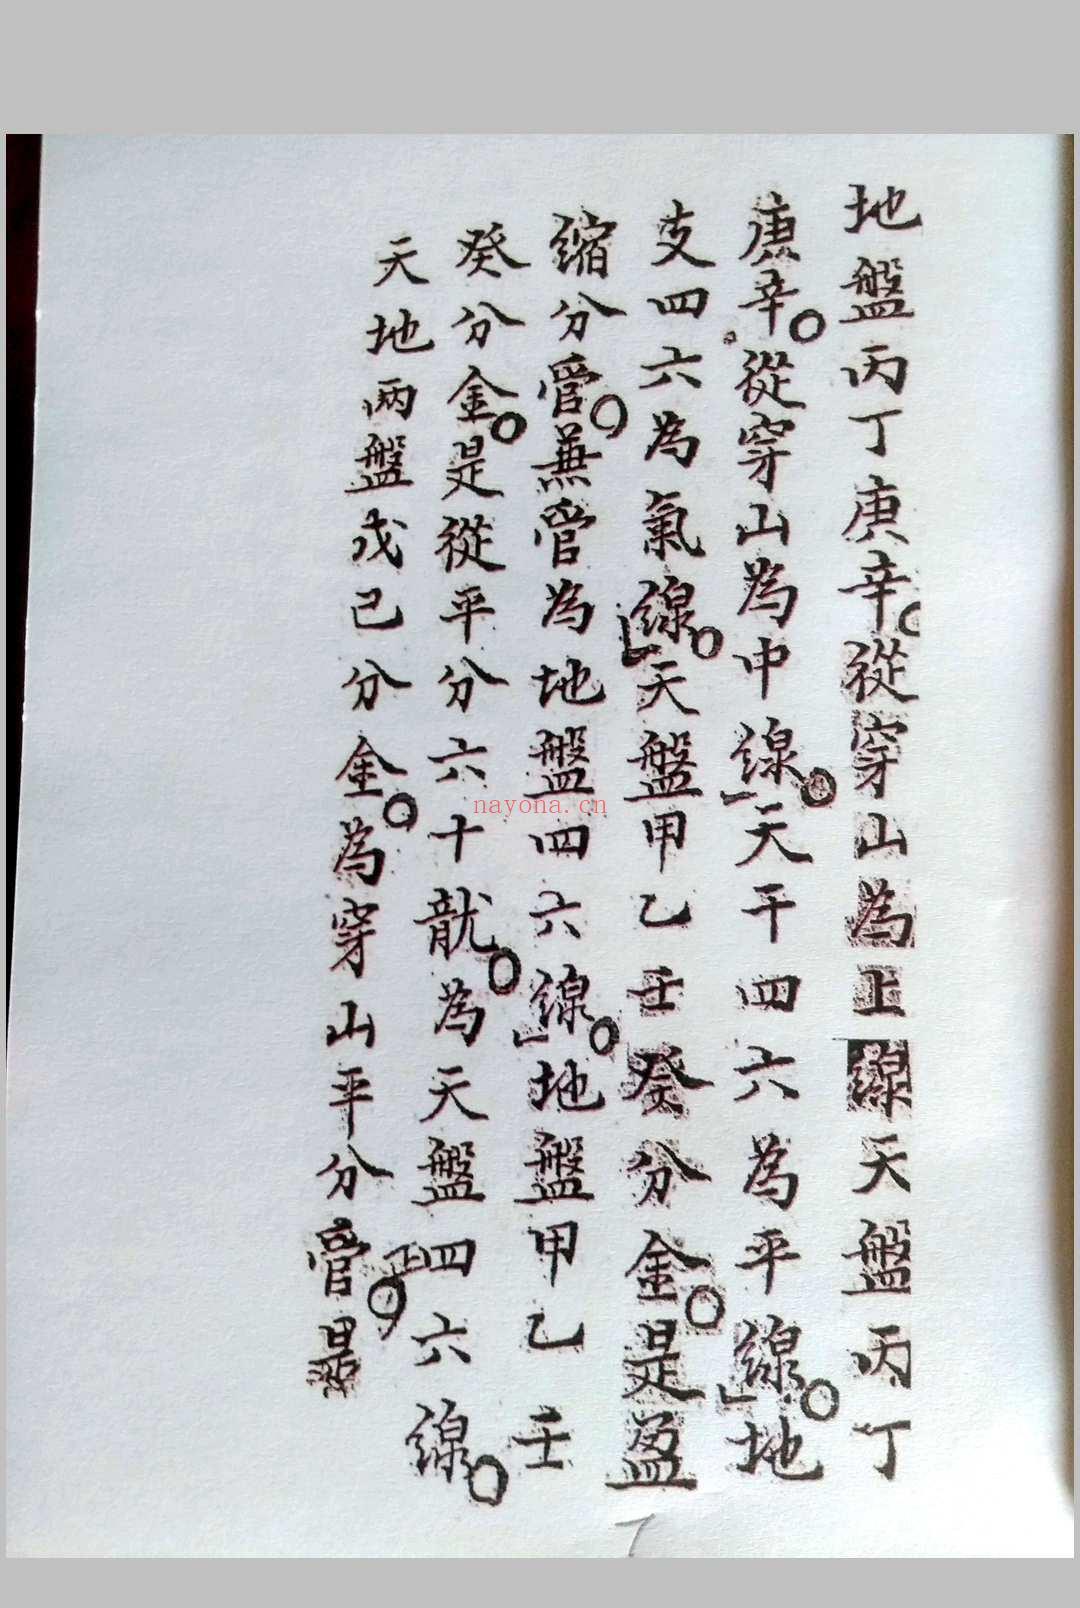 地盤丙丁庚辛。從穿山為上線天盤丙丁
庚辛。從穿山為中線。天干四六為平線。地
支四六為氣線。天盤甲乙壬癸分金。是盈
縮分管。兼管為地盤四六線。地盤甲乙壬
癸分金。是從平分六十龍。為天盤四六線。
天地兩盤戊己分金。為穿山平分
nayona.cn
7